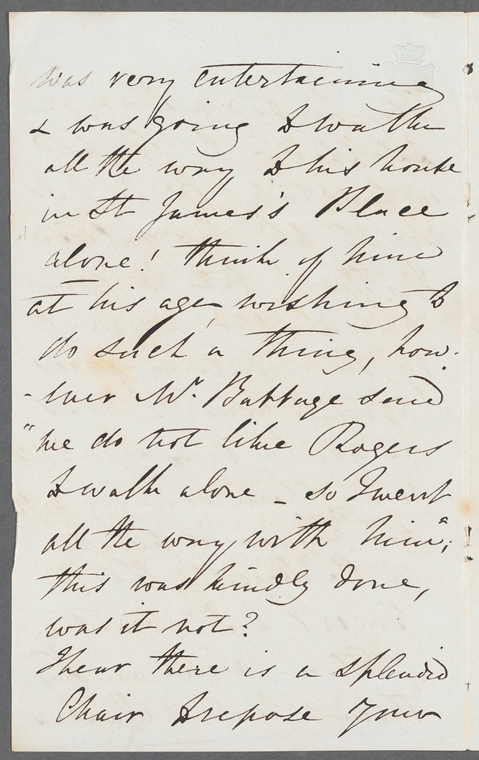 was very entertaining
& was going to walk
all the way to his house
in St James's Place
alone! think of him
at his age wishing to
do such a thing, how-
-ever Mr. Babbage said
"we do not like Rogers
to walk alone – so I went
all the way with him";
this was kindly done,
was it not?
I hear there is a splendid
Chair to repose your